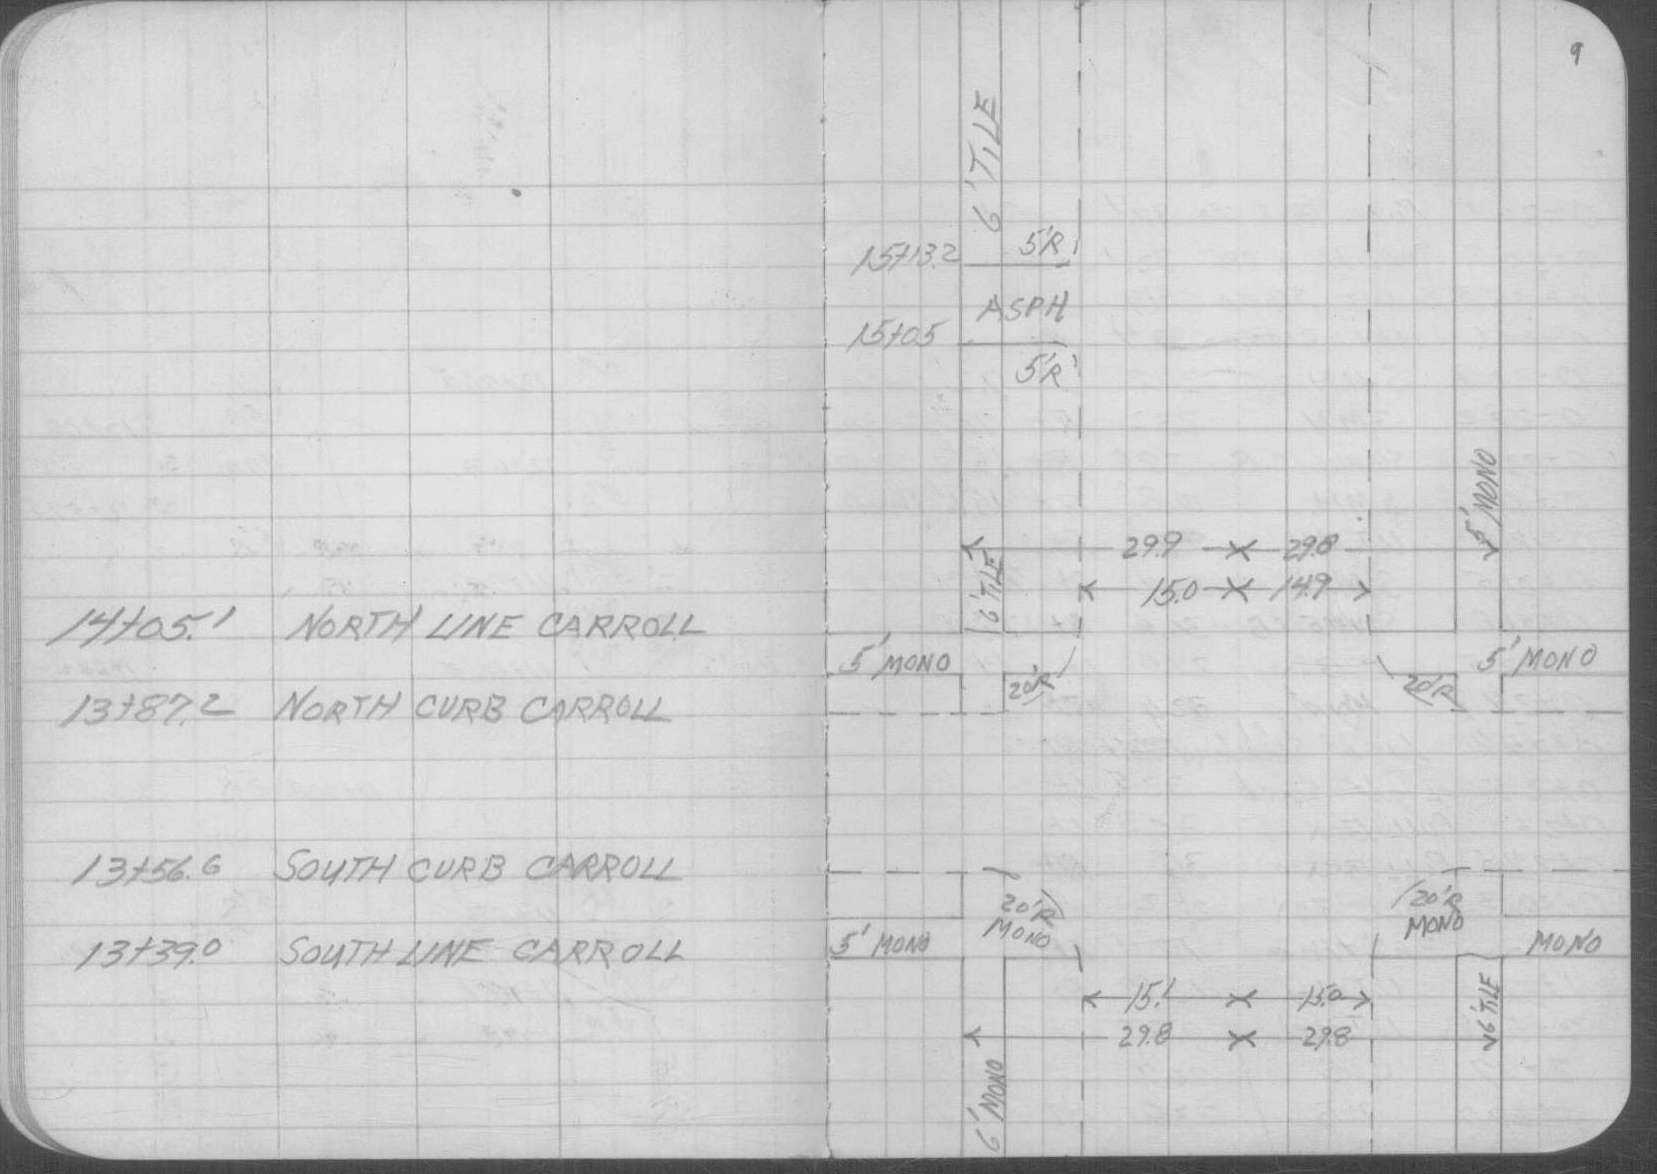 9
6' TILE
15+13.2 5'R
ASPH
15+05
5'R
5' MONO
29.9 29.8
6' TILE
15.0 14.9
14+05.1 NORTH LINE CARROLL
5' MONO 5' MONO
20'R 20'R
13+87.2 NORTH CURB CARROLL
13+56.6 SOUTH CURB CARROLL
20'R 20'R
MONO MONO
13+39.0 SOUTH LINE CARROLL
5' MONO MONO
15.1 15.0
6' TILE
29.8 29.8
6' MONO